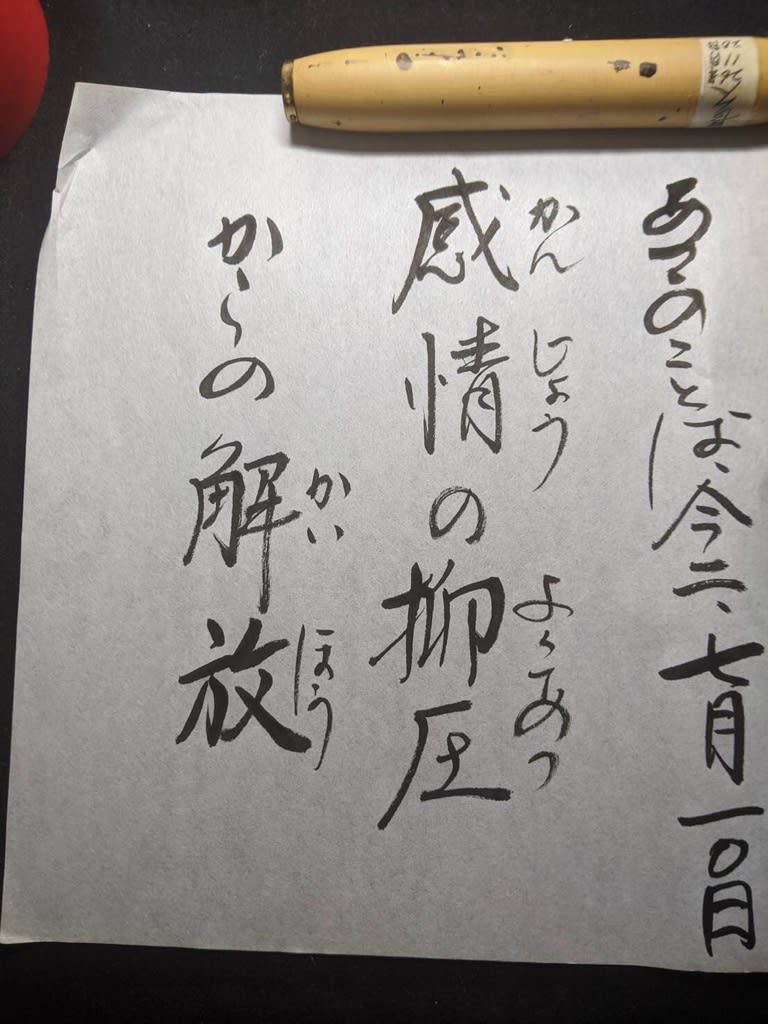 あつのことば、今二、七月一〇日
かんじょう よくあつ
感情の抑圧
かいほう
からの解放